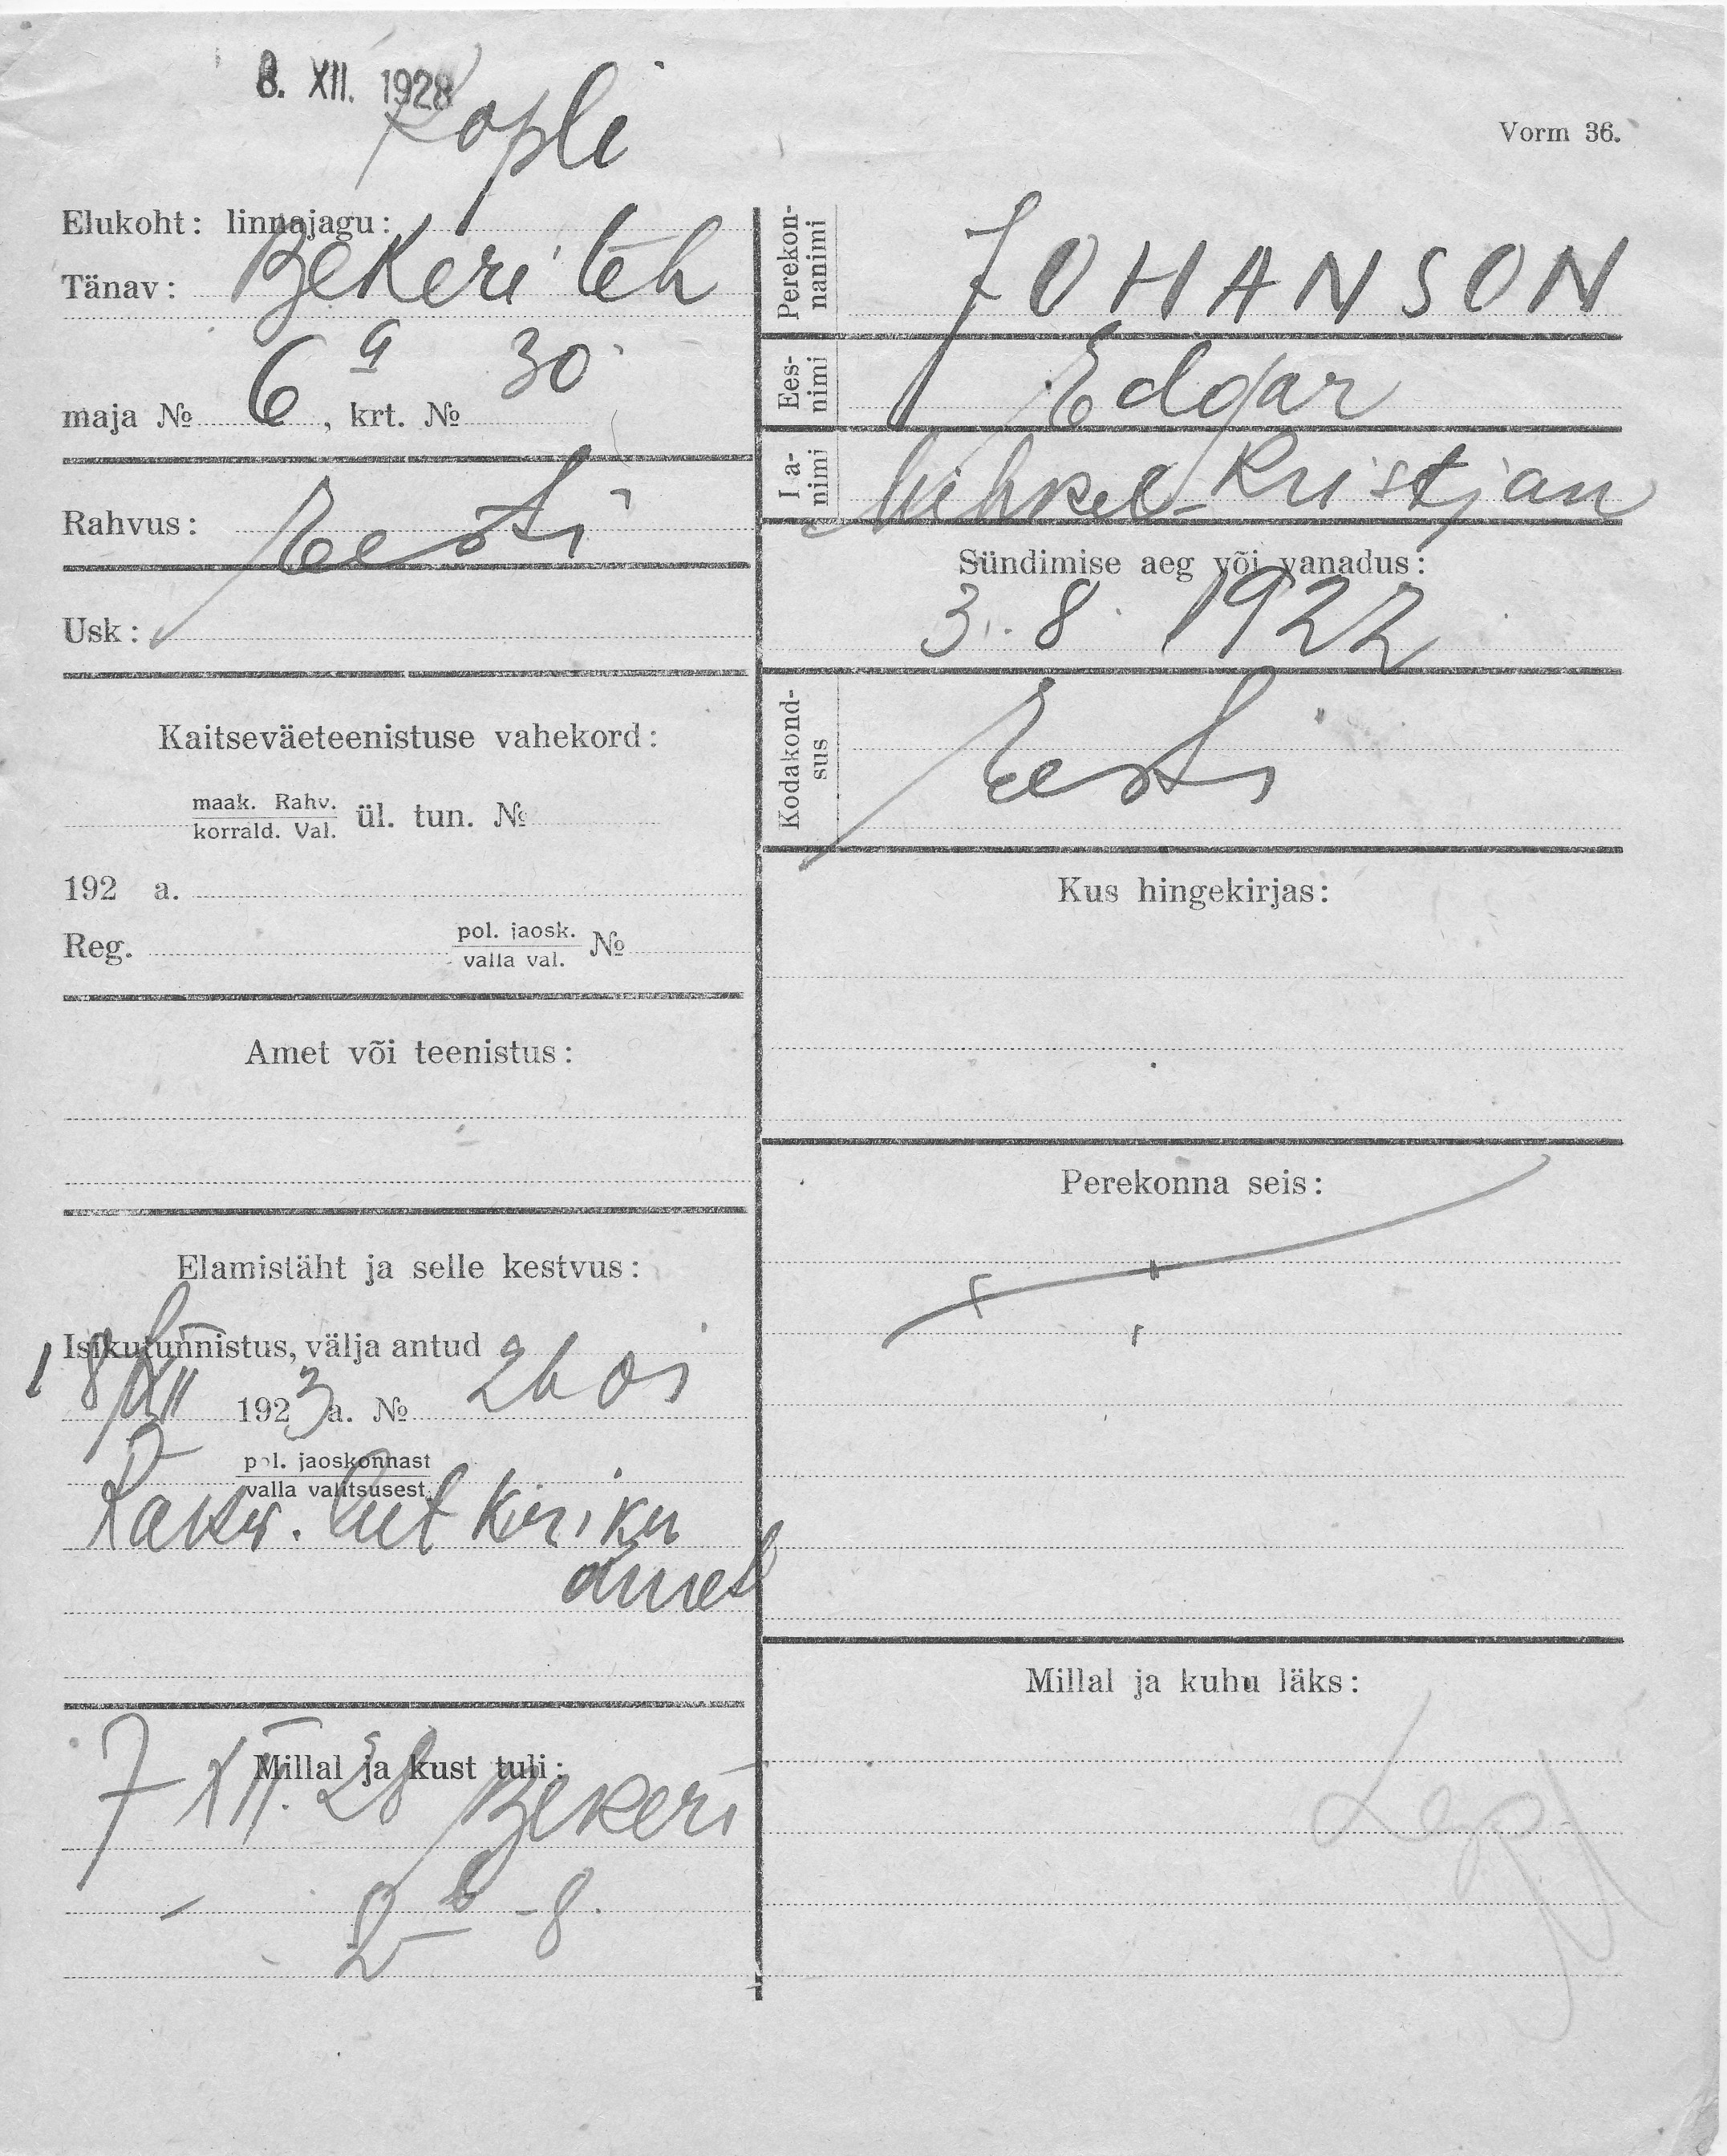 8. XII. 1928
Kopli
Vorm 36.
Elukoht: linnajagu:
Tänav: Bekeri teh
6 a 30
maja № , krt. №
Rahvus: Eesti
Usk:
Kaitseväeteenistuse vahekord:
maak. Rahv.
korrald. Val. ül. tun. №
192 a.
Reg. pol. jaosk. №
valla val.
Amet või teenistus:
Elamistäht ja selle kestvus:
Isikutunnistus, välja antud
18/XII 1923 a. №
pol. jaoskonnast
valla valitsusest
Rakw. Lut kiriku
amet
Millal ja kust tuli:
7 XII. 28 Bekeri
2 b - 8.
Perekon-
nanimi JOHANSON
Ees-
nimi Edgar
I a-
nimi Mihkel-Kristjan
Sündimise aeg või vanadus:
3. 8. 1922
Kodakond-
sus Eesti
Kus hingekirjas:
Perekonna seis:
Millal ja kuhu läks: